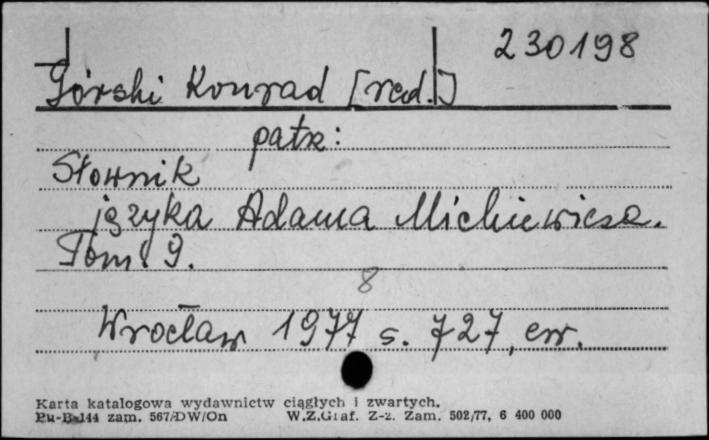 230198
Górski Konrad [red.]
patrz:
Słownik
języka Adama Mickiewicza.
Tom 9.
8
Wrocław 1977 s. 727, err.
Karta katalogowa wydawnictw ciągłych i zwartych.
Pu-B-144 zam. 567/DW/On W.Z.Graf. Z-z. Zam. 502/77, 6 400 000